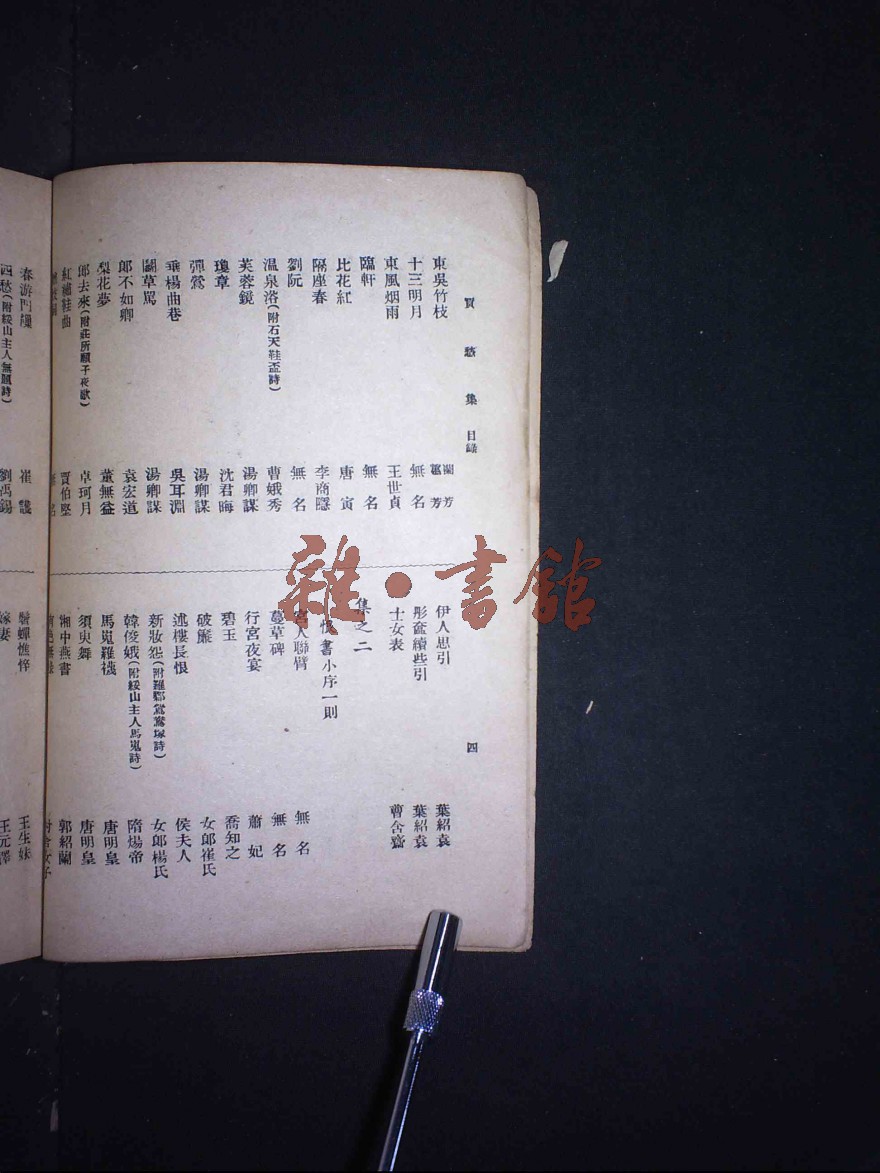 買愁集 目錄
四
東吳竹枝 蘭芳 蕙芳
十三明月 無名
東風烟雨 王世貞
臨軒 無名
比花紅 唐寅
隔座春 李商隱
劉阮 無名
溫泉浴(附石天鞋盃詩) 曹娥秀
芙蓉鏡 湯卿謀
瓊章 沈君晦
彈鶯 湯卿謀
垂楊曲巷 吳耳淵
鬬草罵 湯卿謀
郎不如卿 袁宏道
梨花夢 董無益
郎去來(附莊所願子夜歌) 卓珂月
紅繡鞋曲 賈伯堅
伊人思引 葉紹袁
彤奩續些引 葉紹袁
士女表 曹含齋
集之二
恨書小序一則
宮人聯臂 無名
蔓草碑 無名
行宮夜宴 蕭妃
碧玉 喬知之
破簾 女郎崔氏
迷樓長恨 侯夫人
新妝怨(附羅鄴鴛鴦塚詩) 女郎楊氏
韓俊娥(附綏山主人馬嵬詩) 隋煬帝
馬嵬羅襪 唐明皇
須臾舞 唐明皇
湘中燕書 郭紹蘭
春游門
崔護
四愁(附綏山主人無題詩) 劉禹錫
鬢蟬憔悴 王生妹
嫁妻 王元
雜·書館